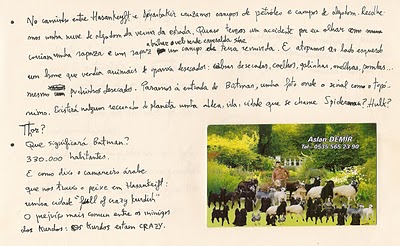 • No caminho entre Hasankeyft e Diyarbakir cruzámos campos de petróleo e campos de algodão. Recolhe-
mos uma nuvem de algodão da berma da estrada. Quase temos um acidente por eu olhar como uma
a brilhar o verde esmeralda sobre
rapariga e um rapaz um campo da terra removida. E avançamos ao lado esquerdo
um homem que vendia animais de quinta dissecados: cabras dissecadas, coelhos, galinhas, ovelhas, pombas...
mesmo pintinhos dissecados. Parámos à entrada de Batman, uma foto onde o sinal como o topó-
nimo. Existirá nalgum recanto do planeta uma aldeia, vila, cidade que se chame Spiderman? Hulk?
Thor?
• Que significará Batman?
330.000 habitantes.
E como dizia o camareiro árabe
que nos trouxe o peixe em Hasankeyft:
uma cidade "full of crazy kurdish"
O prejuízo mais comum entre os inimigos
dos Kurdos: Os Kurdos estám CRAZY.
Aslan DEMİR
Tel 0535 565 23 90